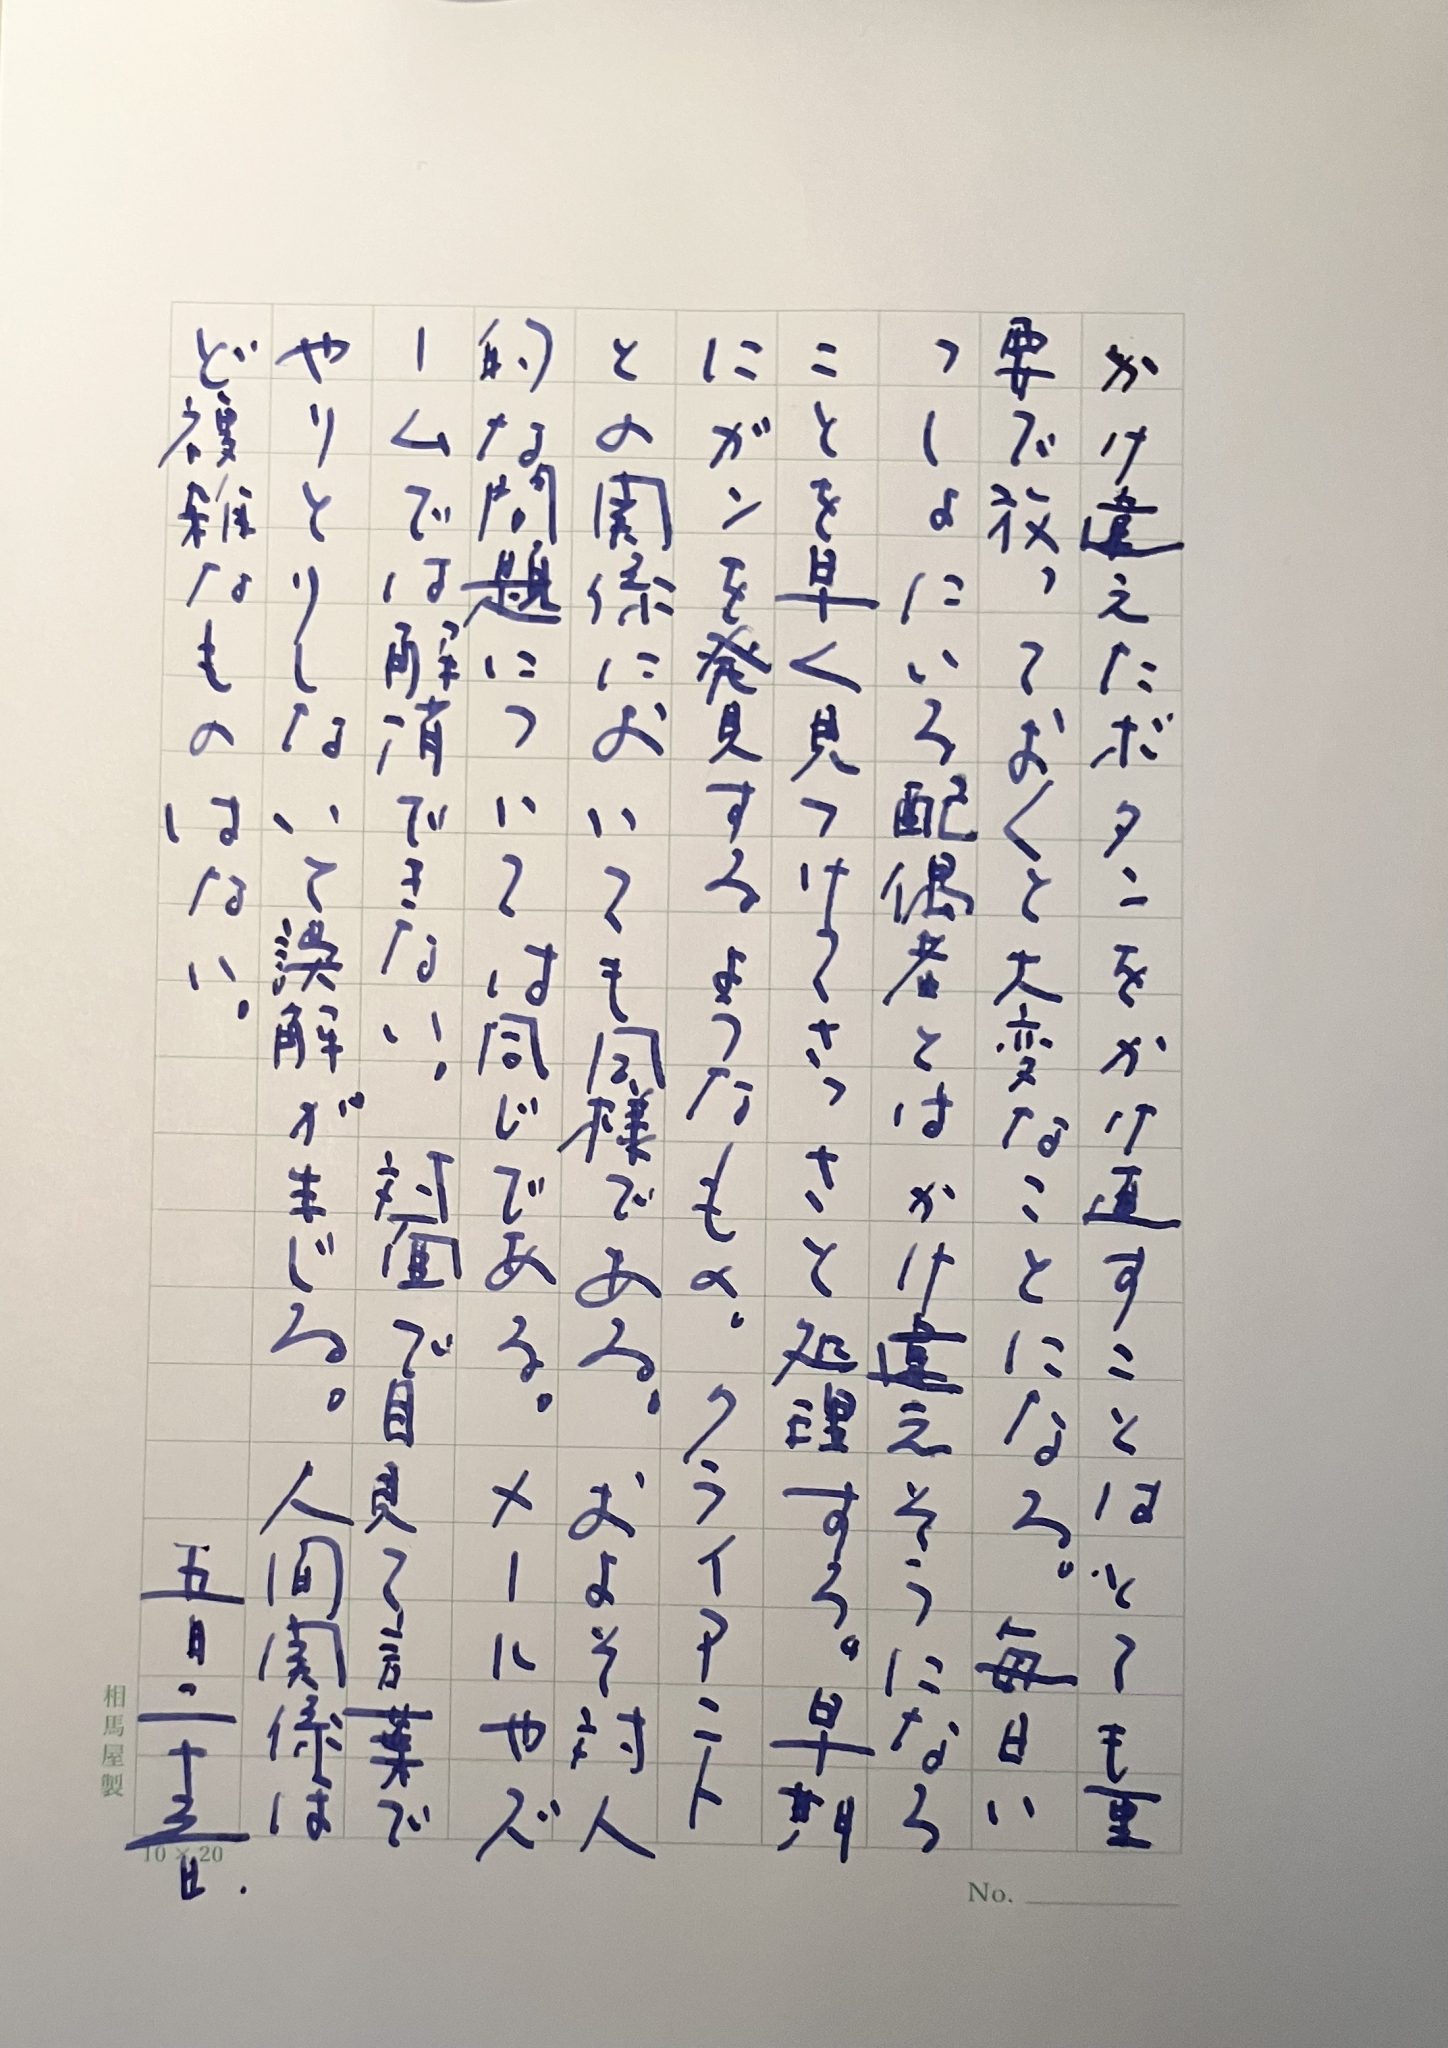 かけ違えたボタンをかけ直すことはとても重
要で放っておくと大変なことになる。毎日い
っしょにいる配偶者とはかけ違えそうになる
ことを早く見つけてさっさと処理する。早期
にガンを発見するようなもの。クライアント
との関係においても同様である。およそ対人
的な問題については同じである。メールやズ
ームでは解消できない。対面で目見て言葉で
やりとりしないと誤解がまじる。人間関係は
ど複雑なものはない。
五月二十三日.
相馬屋製
10×20
No.